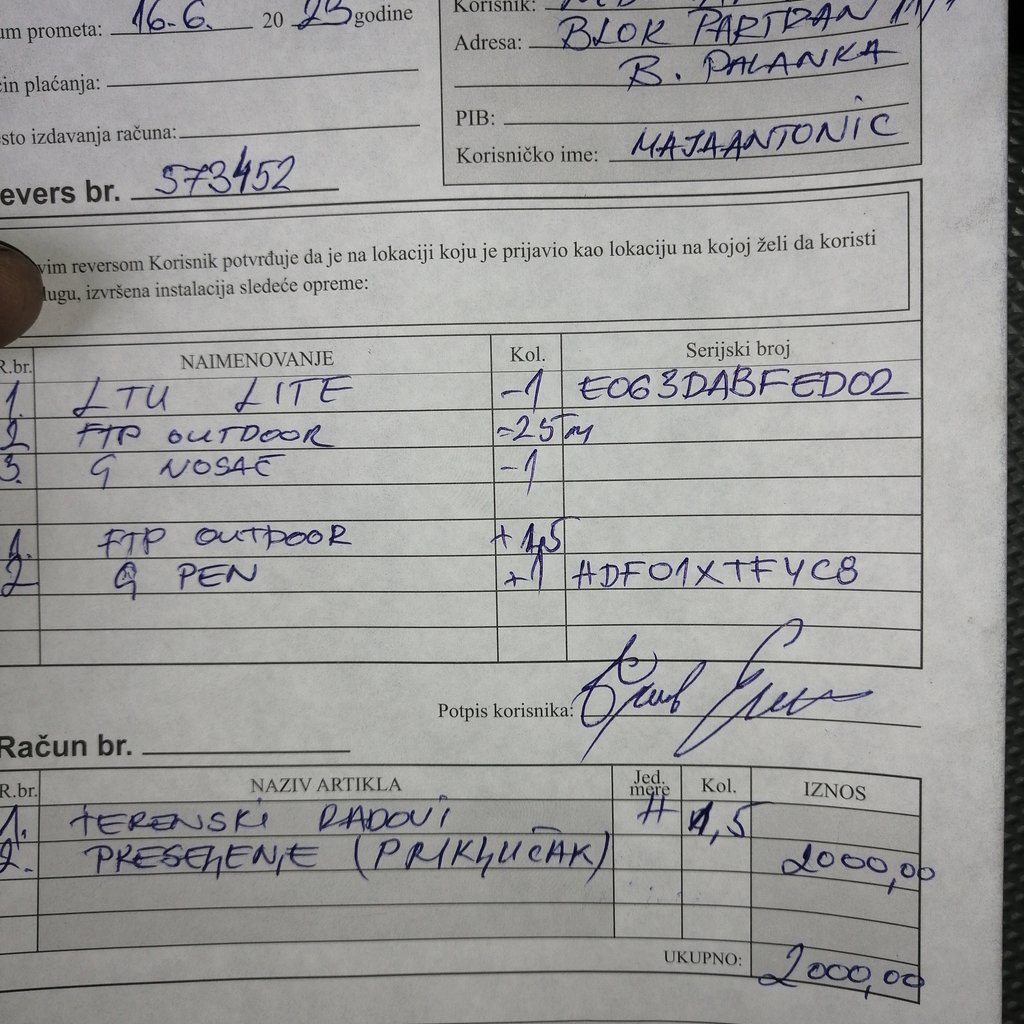 um prometa: 16.6. 20 23 godine
Korisnik:
Adresa: BLOK PARTIZAN
B. PALANKA
čin plaćanja:
PIB:
esto izdavanja računa:
Korisničko ime: MAJAANTONIC
evers br. 573452
vim reversom Korisnik potvrđuje da je na lokaciji koju je prijavio kao lokaciju na kojoj želi da koristi
lugu, izvršena instalacija sledeće opreme:
R.br. NAIMENOVANJE Kol. Serijski broj
1. LTU LITE -1 E063DABFED02
2 FTP OUTDOOR -25m
3. G NOSAČ -1
1. FTP OUTDOOR + 1,5
2 G PEN +1 HDF01XTF4C8
Potpis korisnika:
Račun br.
R.br. NAZIV ARTIKLA Jed. mere Kol. IZNOS
1. TERENSKI RADOVI H 1,5
2. PRESELJENJE (PRIKLJUČAK) 2000,00
UKUPNO: 2000,00